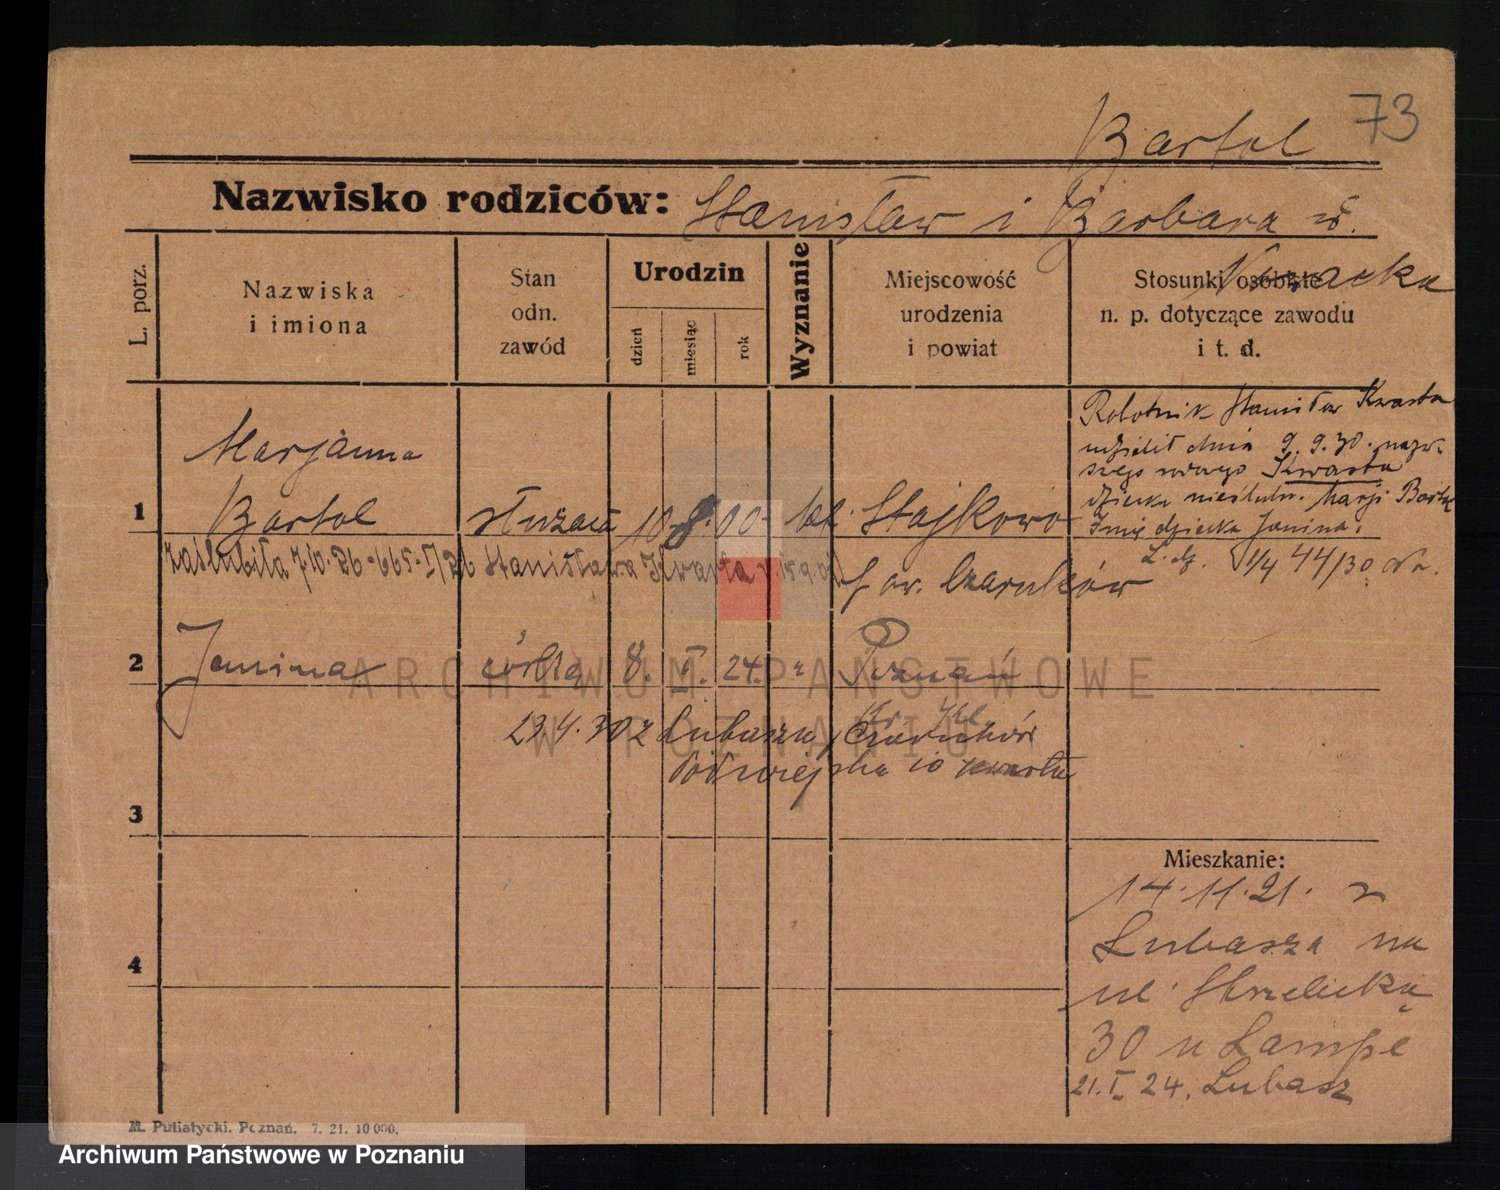 73
Bartol
Nazwisko rodziców: Stanisław i Barbara z d.
Nowacka
L. porz.
Nazwiska
i imiona
Stan
odn.
zawód
Urodzin
dzień
miesiąc
rok
Wyznanie
Miejscowość
urodzenia
i powiat
Stosunki osobiste
n. p. dotyczące zawodu
i t. d.
Robotnik Stanisław Kwarta
udzielił dnia 9.9.30. nazw-
Kwarta
dziecku nieślubn. Marji Bartol
Imię dziecka Janina.
L. dz. 44/30
Marjanna
1 Bartol służąca 10 8. 00 kat. Stajkowo
zaślubiła 7.10.36 -665-I/36 Stanisława Kwarta
pow. Czarnków
2 Janina córka 8. I. 24. " Poznań
23.4.30 z Lubasza, Czarnków
10
3
4
Mieszkanie:
14.11.21. z
Lubasza na
ul. Strzelecką
30 u Lampe
21.I.24. Lubasz
ARCHIWUM PAŃSTWOWE
W POZNANIU
M. Putiatycki. Poznań. 7. 21. 10 000.
Archiwum Państwowe w Poznaniu